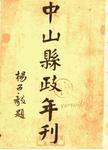 中山縣政年刊
楊子毅題